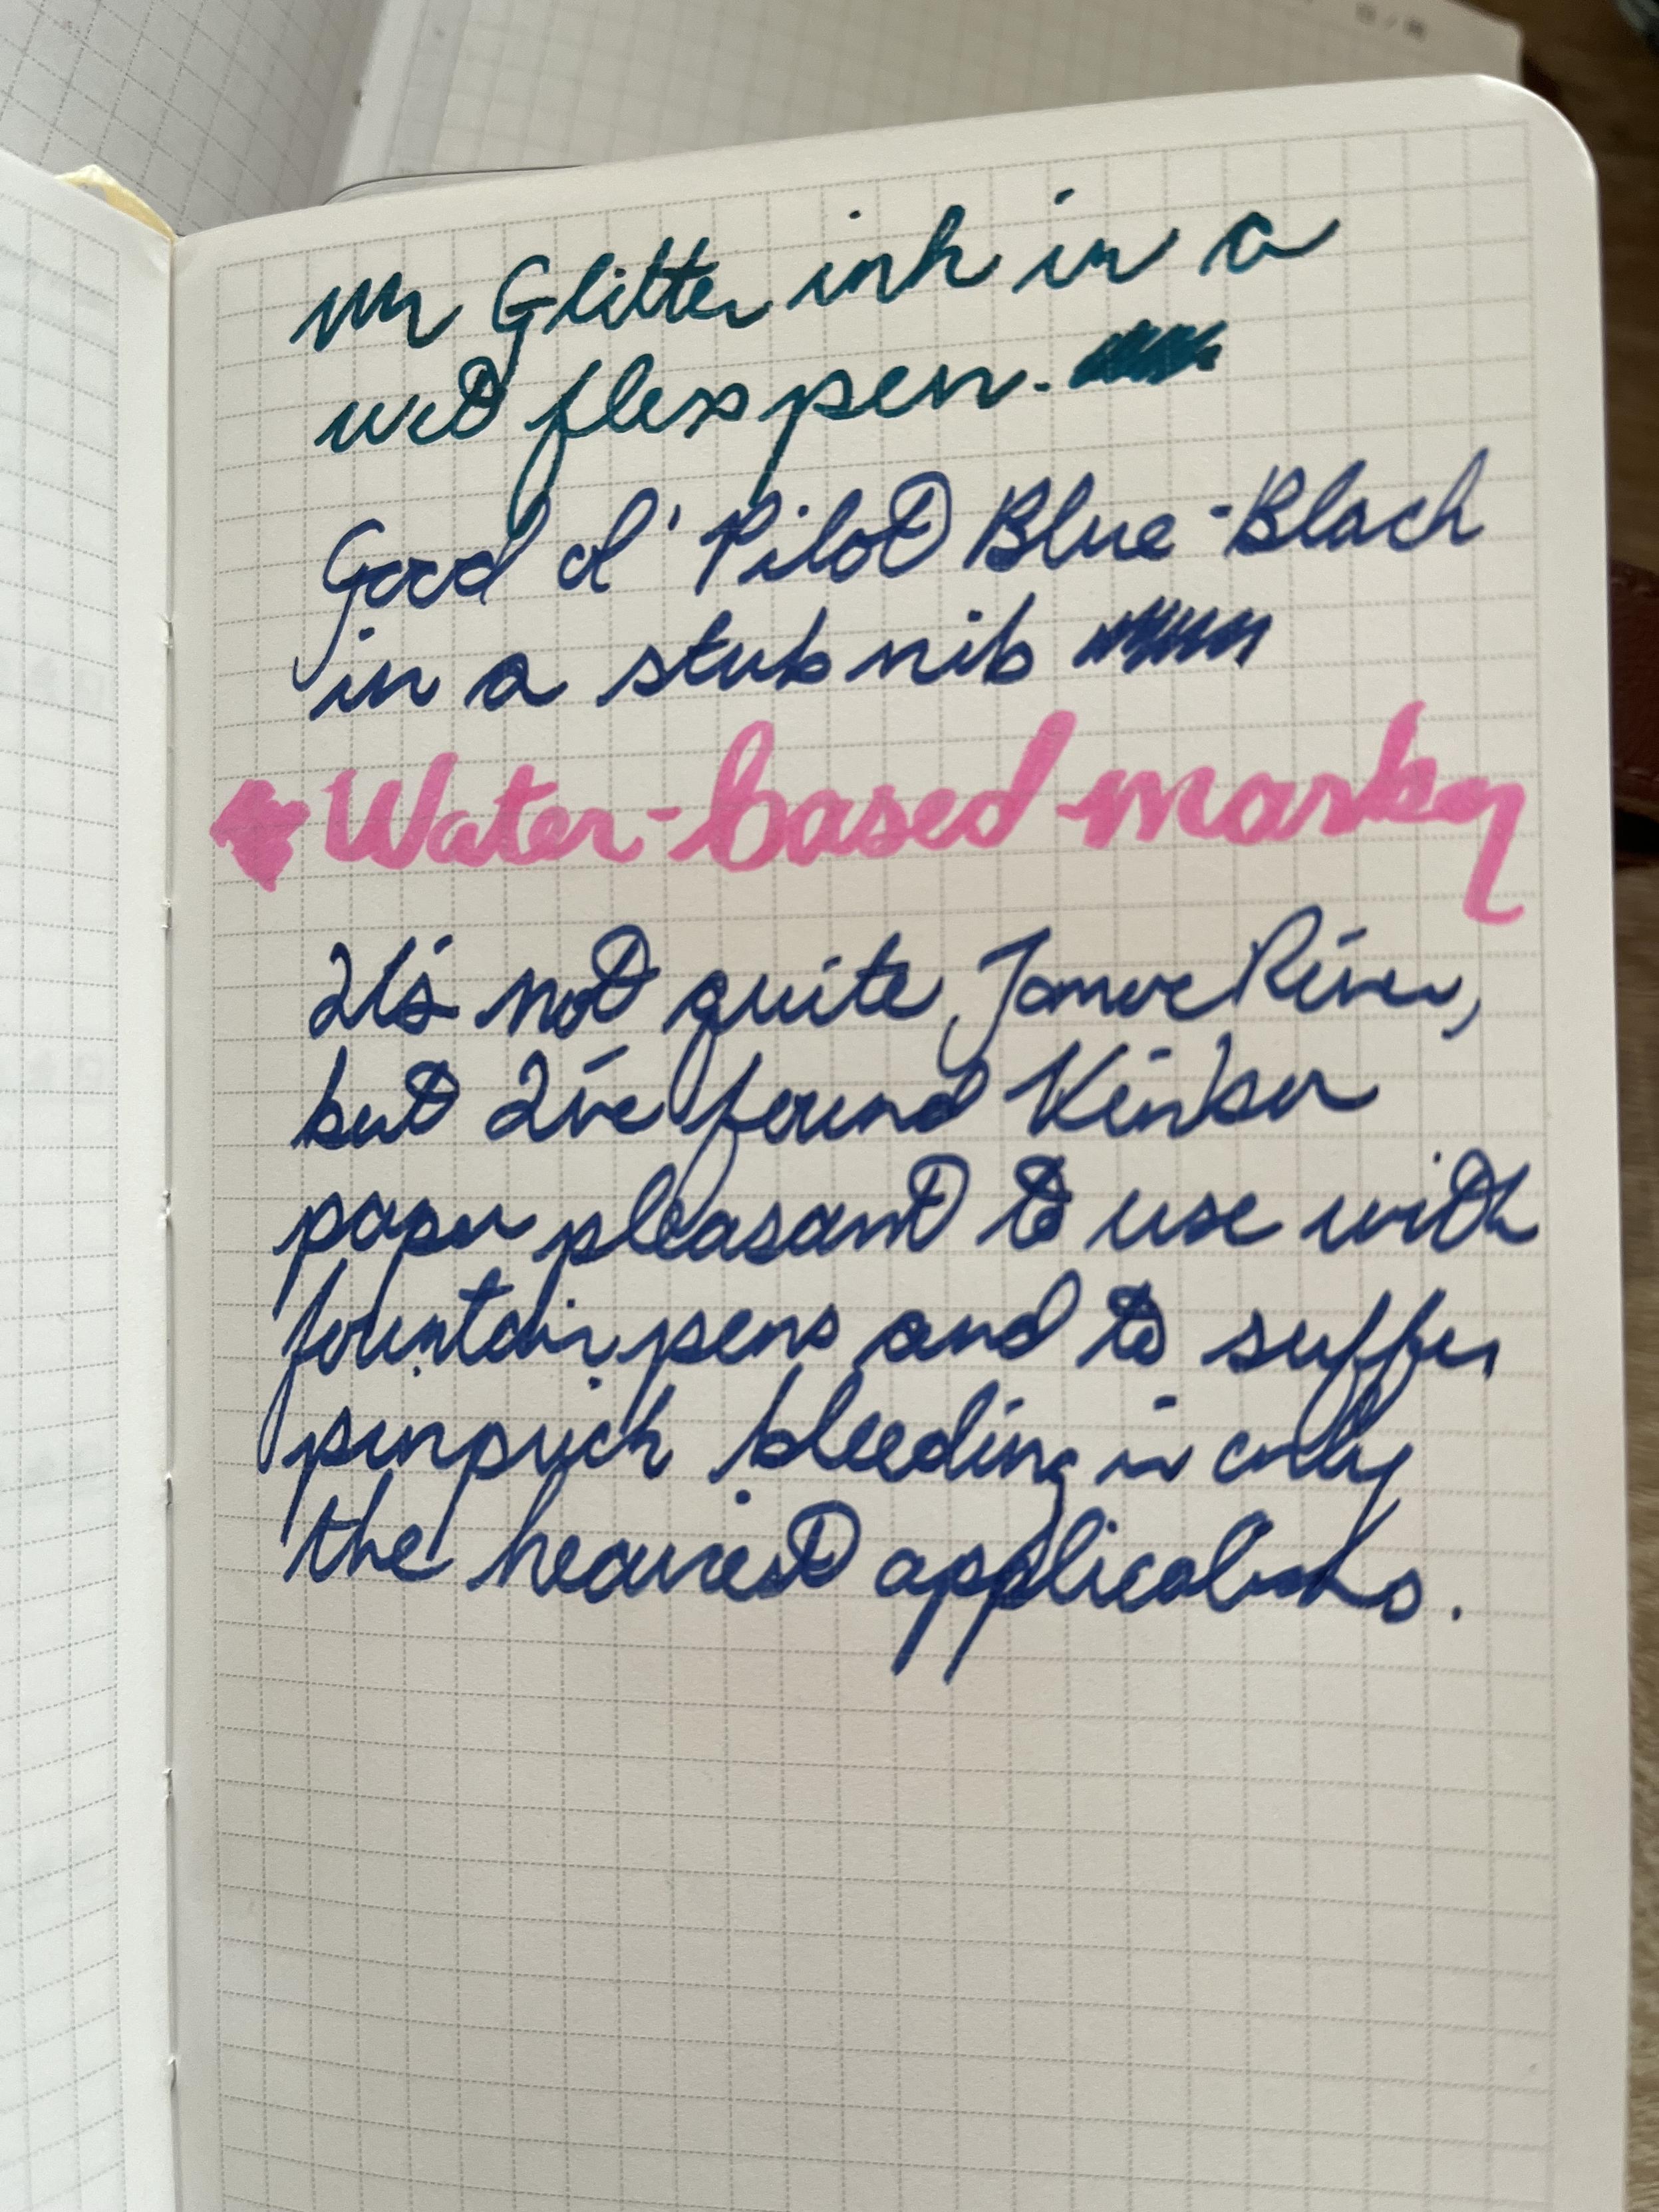 Mr Glitter ink in a
wet flex pen.
Good ol' Pilot Blue-Black
in a stub nib
Water-based marker
It's not quite Tomoe River,
but I've found Kinbor
paper pleasant to use with
fountain pens and to suffer
pinprick bleeding in only
the heaviest applications.